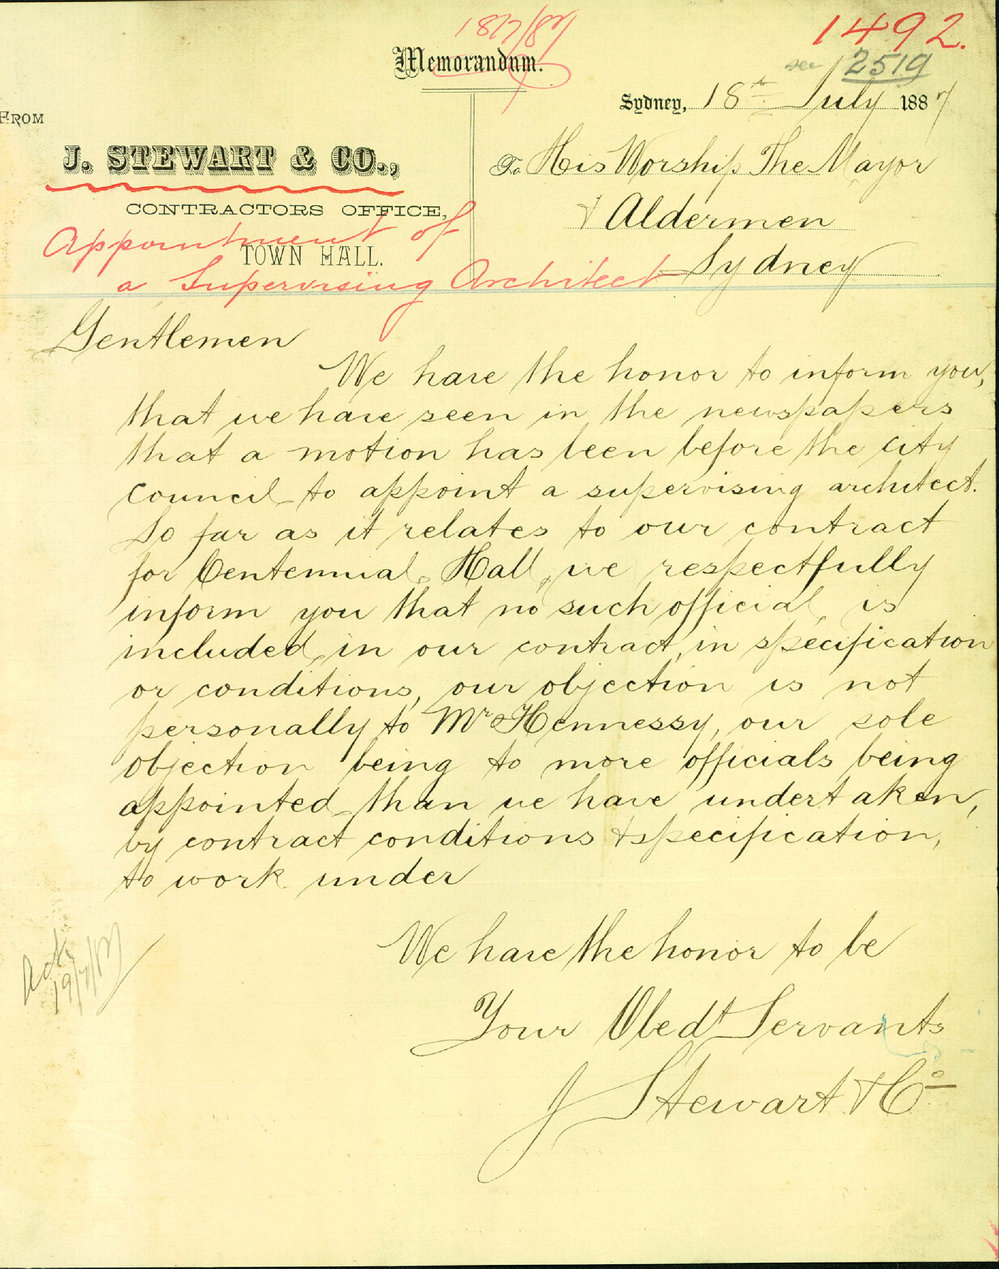 18/7/87
1492.
Memorandum.
see 2519
Sydney, 18th July 1887
FROM
J. STEWART & CO.,
To His Worship The Mayor
CONTRACTORS OFFICE,
& Aldermen
Appointment of
TOWN HALL.
Sydney
a Supervising Architect
Gentlemen
We have the honor to inform you,
that we have seen in the newspapers
that a motion has been before the City
Council to appoint a supervising architect.
So far as it relates to our contract
for Centennial Hall, we respectfully
inform you that no such official is
included in our contract, in specification
or conditions, our objection is not
personally to Mr Hennessy, our sole
objection being to more officials being
appointed than we have undertaken,
by contract conditions & specification,
to work under
We have the honor to be
Your Obedt Servants
J Stewart & Co
Ack
19/7/87